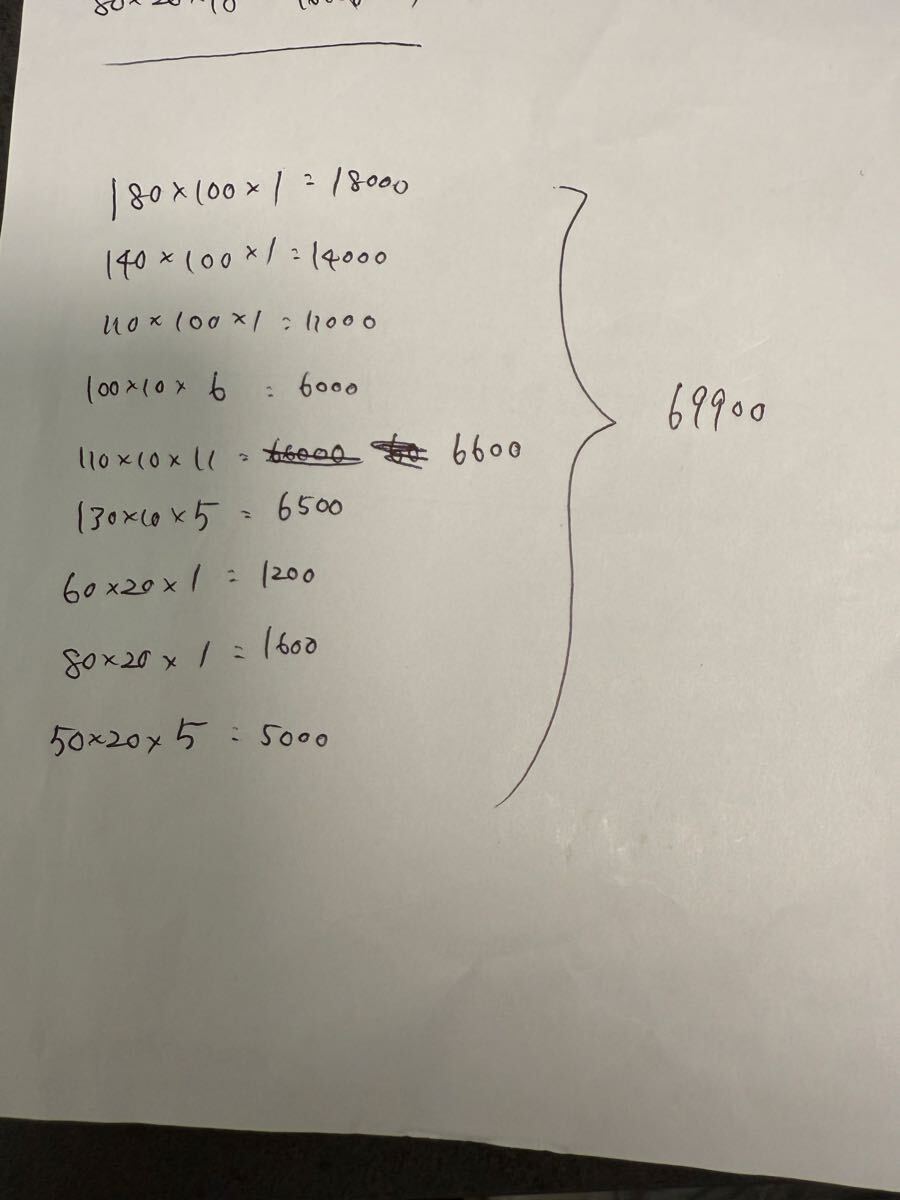 180×100×1 = 18000
140×100×1 = 14000
110×100×1 = 11000
100×10×6 = 6000
110×10×11 = 6600
130×10×5 = 6500
60×20×1 = 1200
80×20×1 = 1600
50×20×5 = 5000
69900